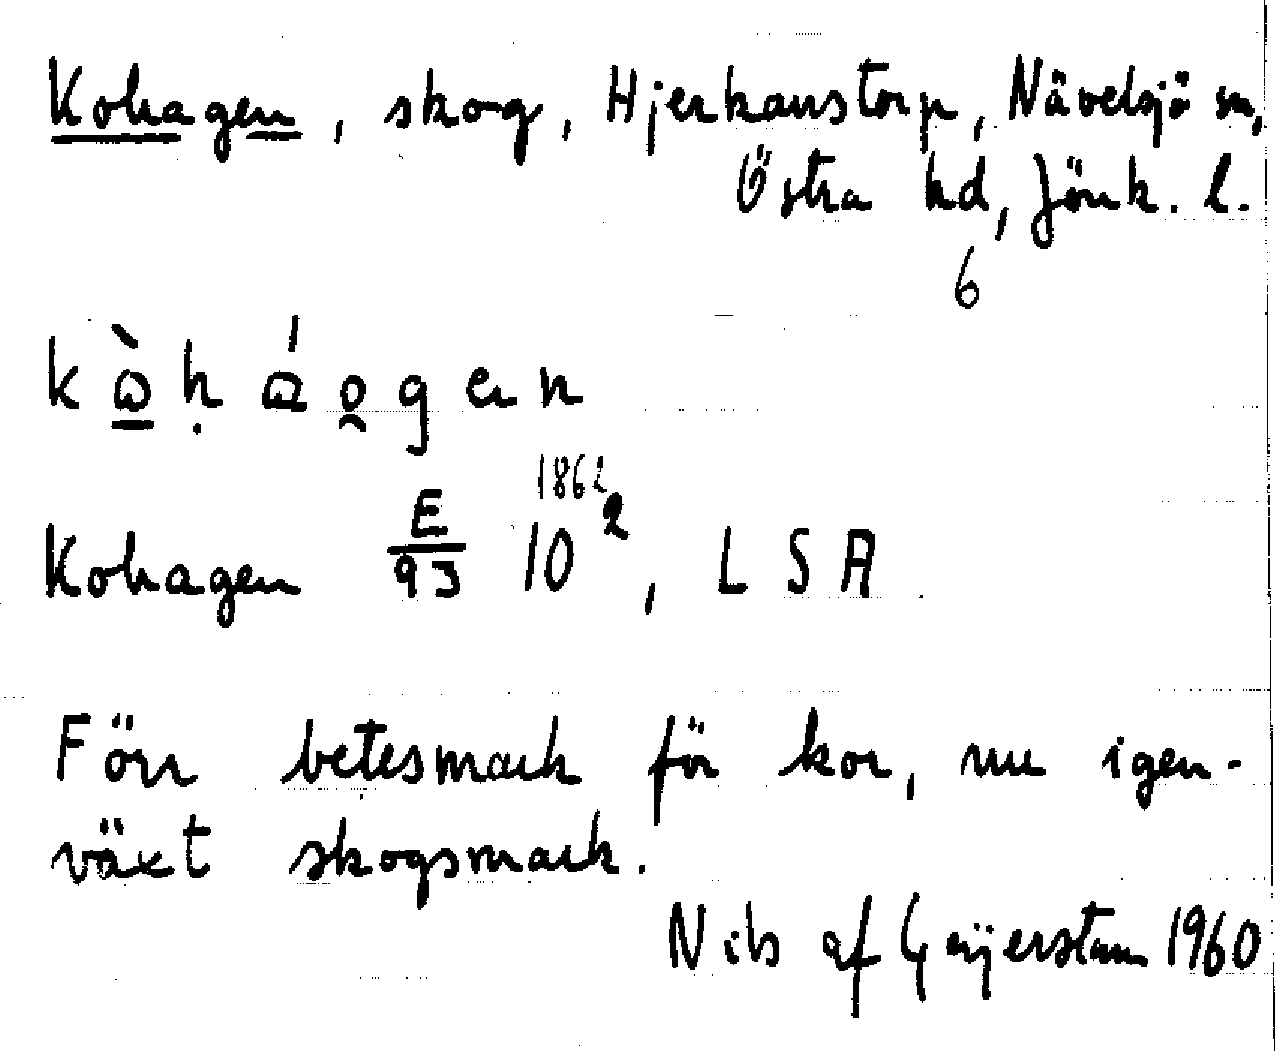 Kohagen, skog, Hjerkanstorp, Nävelsjö sn,
Östra hd, Jönk. l.
6
Kohagen E/93 10², LSA
1862
Förr betesmark för kor, nu igen-
växt skogsmark.
Nils af Geijerstam 1960